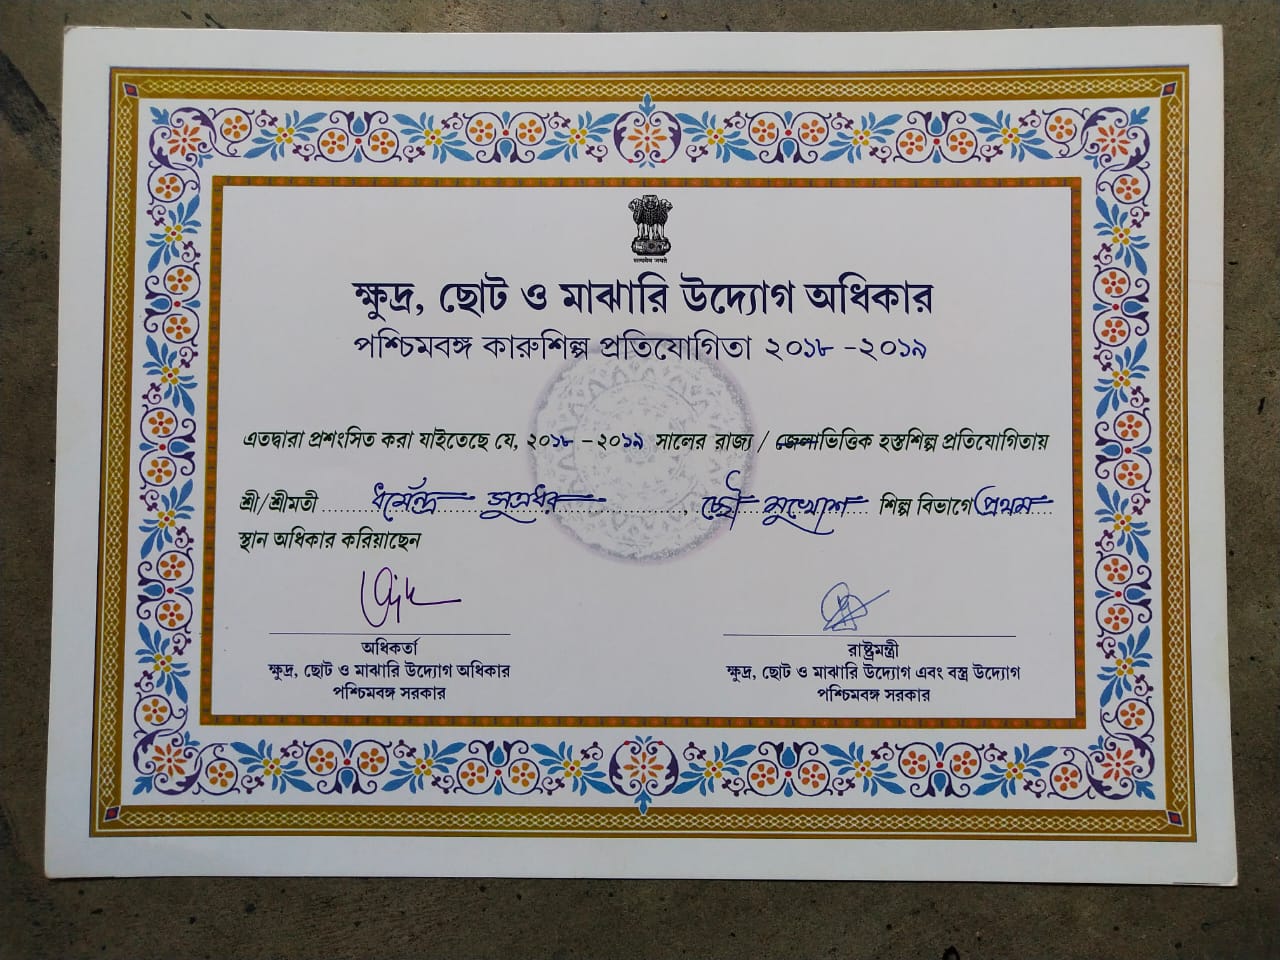 सत्यमेव जयते
ক্ষুদ্র, ছোট ও মাঝারি উদ্যোগ অধিকার
পশ্চিমবঙ্গ কারুশিল্প প্রতিযোগিতা ২০১৮ -২০১৯
এতদ্বারা প্রশংসিত করা যাইতেছে যে, ২০১৮ -২০১৯ সালের রাজ্য / জেলাভিত্তিক হস্তশিল্প প্রতিযোগিতায়
শ্রী/শ্রীমতী ধর্মেন্দ্র সূত্রধর, ছৌ মুখোশ শিল্প বিভাগে প্রথম
স্থান অধিকার করিয়াছেন
অধিকর্তা
ক্ষুদ্র, ছোট ও মাঝারি উদ্যোগ অধিকার
পশ্চিমবঙ্গ সরকার
রাষ্ট্রমন্ত্রী
ক্ষুদ্র, ছোট ও মাঝারি উদ্যোগ এবং বস্ত্র উদ্যোগ
পশ্চিমবঙ্গ সরকার